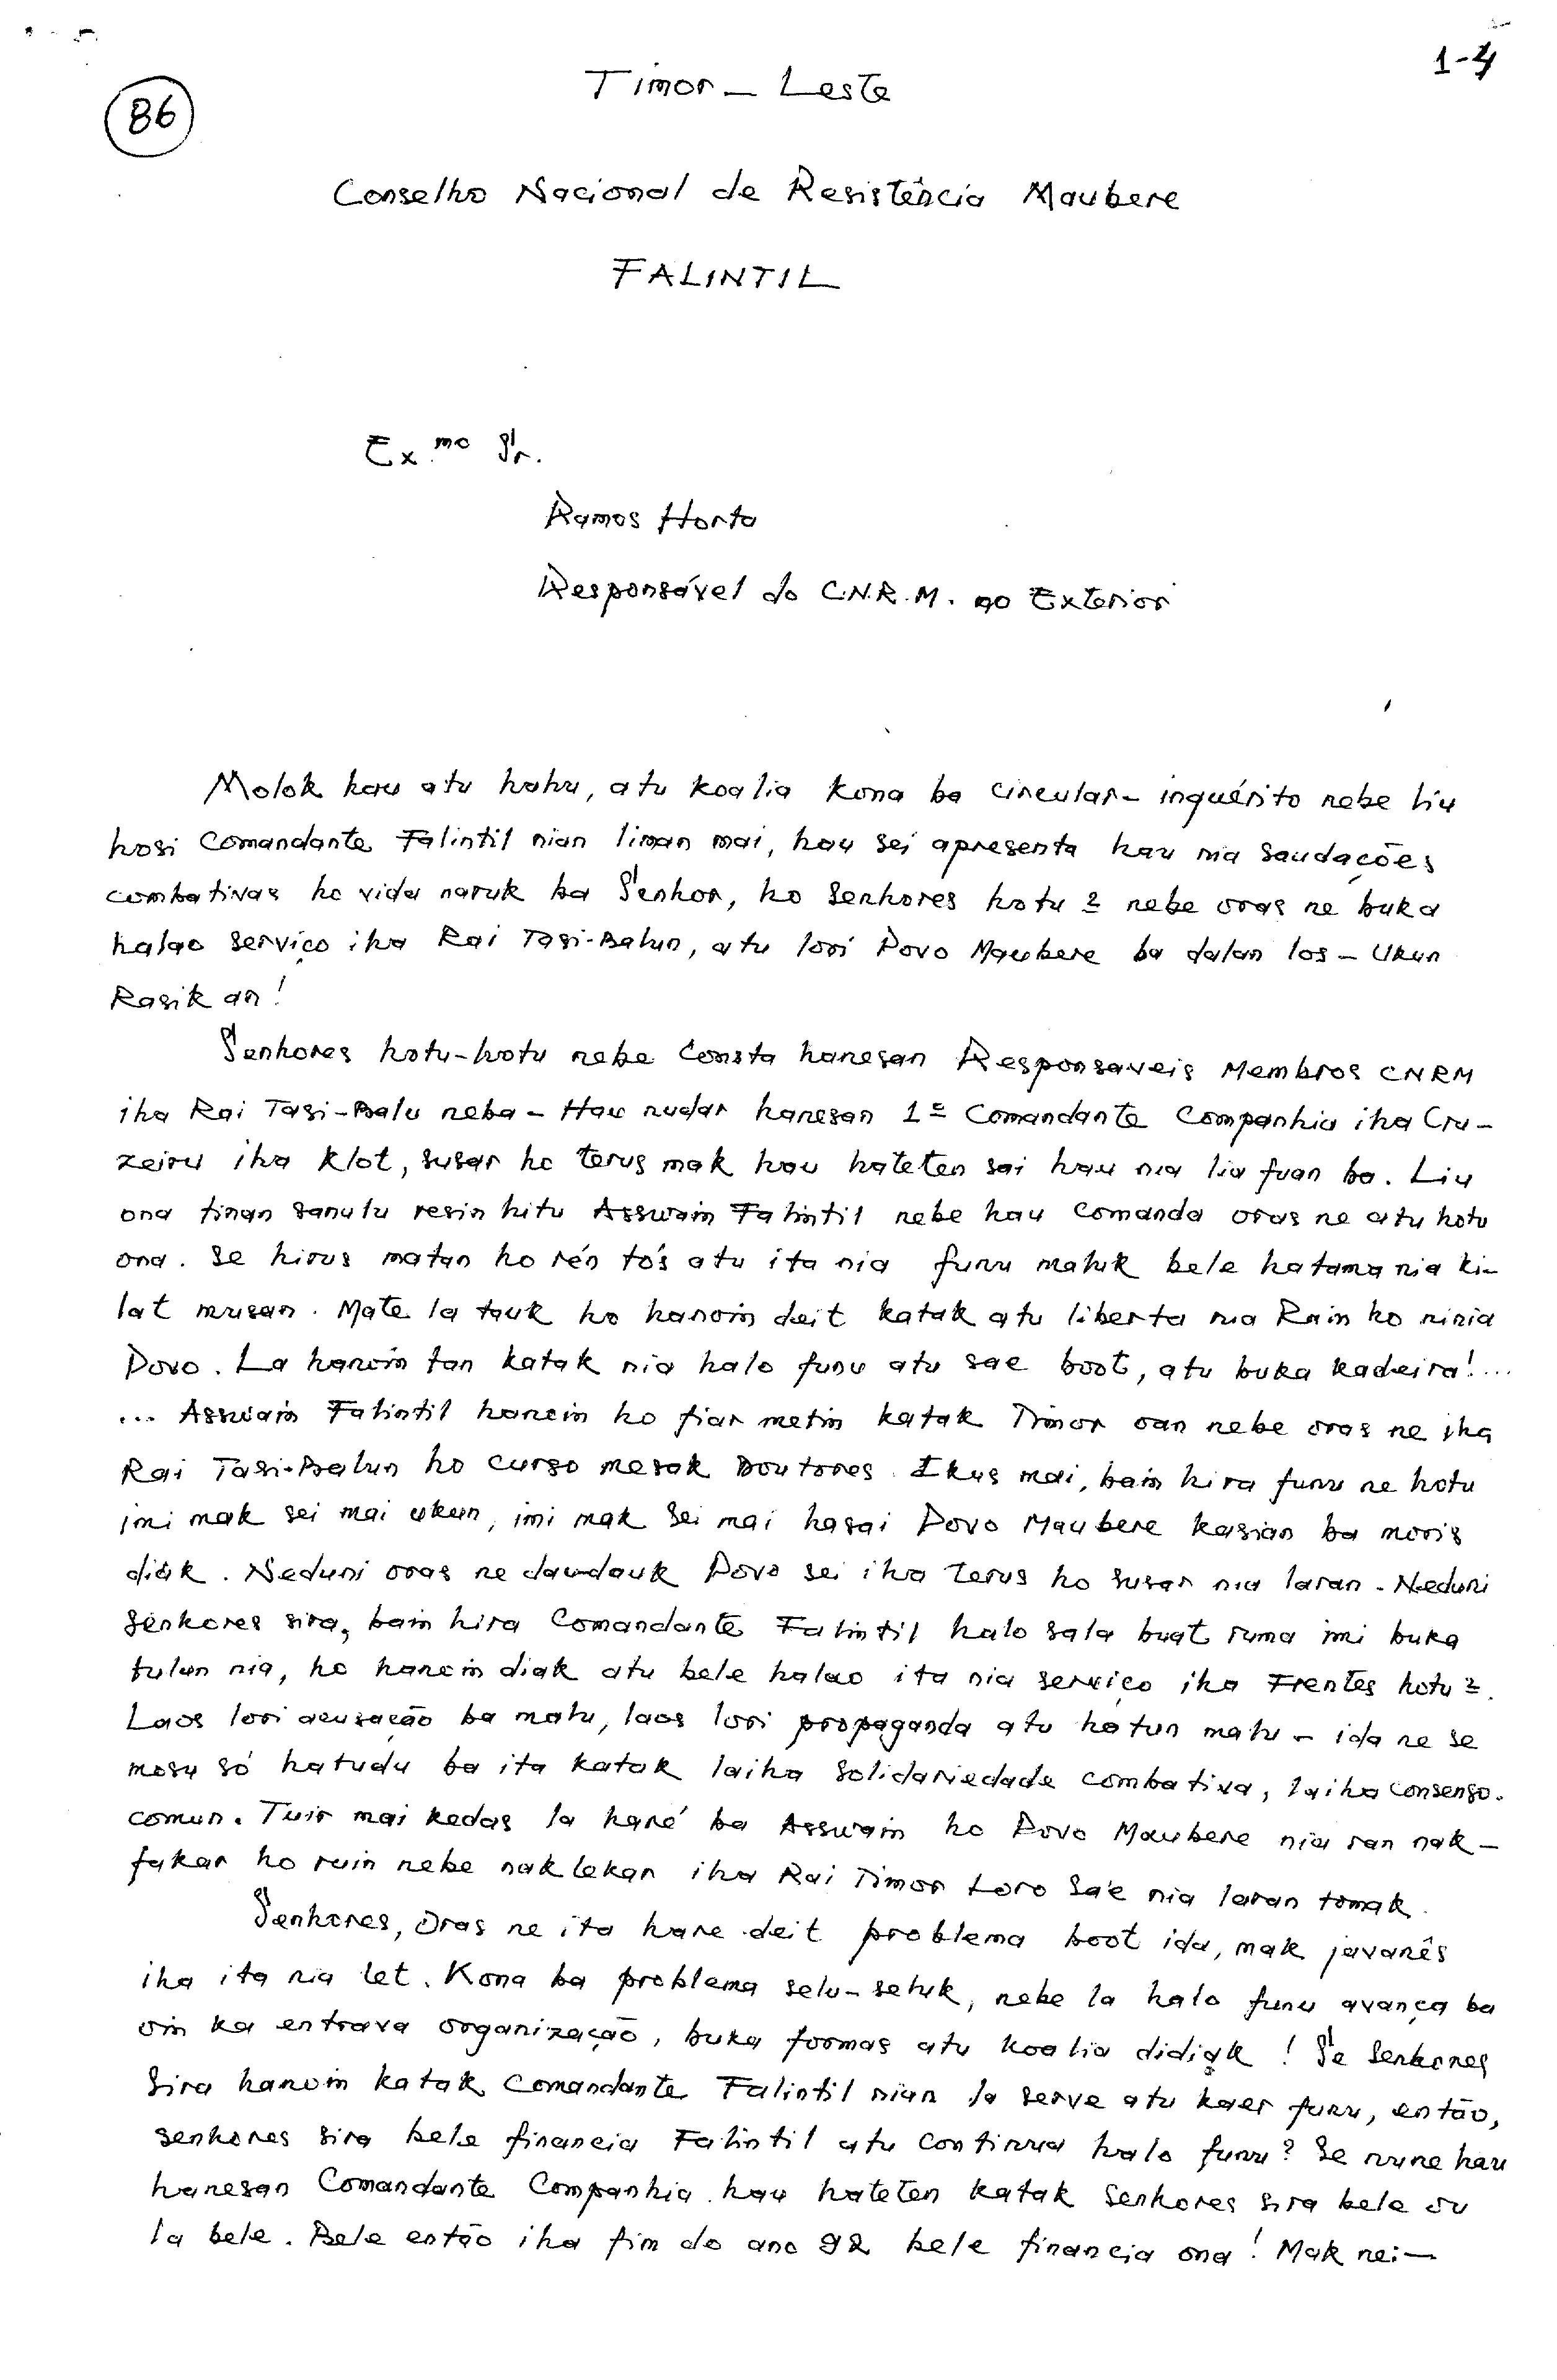 1-4
86
Timor - Leste
Conselho Nacional de Resistência Maubere
FALINTIL
Ex.mo Sr.
Ramos Horta
Responsável do C.N.R.M. no Exterior
Molok hau atu hahu, atu koalia kona ba circular-inquérito nebe liu
hosi Comandante Falintil nian liman mai, hau sei apresenta hau nia saudações
combativas ho vida naruk ba Senhor, ho senhores hotu 2 nebe oras ne buka
halao serviço iha Rai Tasi-Balun, atu lori Povo Maubere ba dalan los - Ukun
Rasik an!
Senhores hotu-hotu nebe consta hanesan Responsaveis Membros CNRM
iha Rai Tasi-Balu neba - Hau nudar hanesan 1º Comandante Companhia iha Cru-
zeiru iha klot, susar ho terus mak hau hateten sai hau nia lia fuan ba. Liu
ona tinan sanulu resin hitu Asswain Falintil nebe hau comanda oras ne atu hotu
ona. Se hirus matan ho rén tós atu ita nia funu maluk bele hatama nia ki-
lat musan. Mate la tauk ho hanoin deit katak atu liberta nia Rain ho ninia
Povo. La hanoin tan katak nia halo funu atu sae boot, atu buka kadeira!...
... Asswain Falintil hanoin ho fiar metin katak Timor oan nebe oras ne iha
Rai Tasi-Balun ho curso mesak Doutores. Ikus mai, bain hira funu ne hotu
imi mak sei mai ukun, imi mak sei mai hasai Povo Maubere kasian ba moris
diak. Neduni oras ne daudauk Povo sei iha terus ho susar nia laran. Neduni
senhores sira, bain hira Comandante Falintil halo sala buat ruma imi buka
tulun nia, ho hanoin diak atu bele halao ita nia serviço iha Frentes hotu 2.
Laos lori acusação ba malu, laos lori propaganda atu hatun malu - ida ne se
mosu só hatudu ba ita katak laiha solidariedade combativa, laiha consenso.
comun. Tuir mai kedas la haré ba Asswain ho Povo Maubere nia ran nak-
fakar ho ruin nebe naklekar iha Rai Timor Loro Sa'e nia laran tomak.
Senhores, Oras ne ita hare deit problema boot ida, mak javanês
iha ita nia let. Kona ba problema selu-seluk, nebe la halo funu avança ba
oin ka entrava organização, buka formas atu koalia didiak! Se Senhores
sira hanoin katak Comandante Falintil nian la serve atu kaer funu, então,
senhores sira bele financia Falintil atu continua halo funu? Se nune hau
hanesan Comandante Companhia hau hateten katak senhores sira bele ou
la bele. Bele então iha fim do ano 92 bele financia ona! Mak nei-